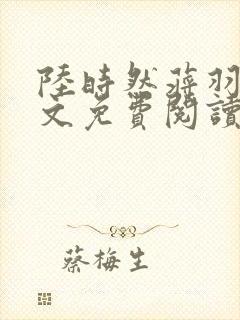 陸時然蔣羽
文免費閱讀
蔡梅生